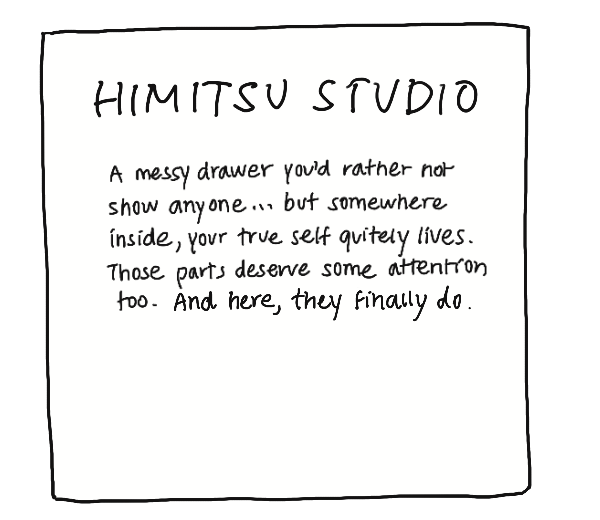 HIMITSU STUDIO
A messy drawer you'd rather not
show anyone... but somewhere
inside, your true self quitely lives.
Those parts deserve some attention
too. And here, they finally do.